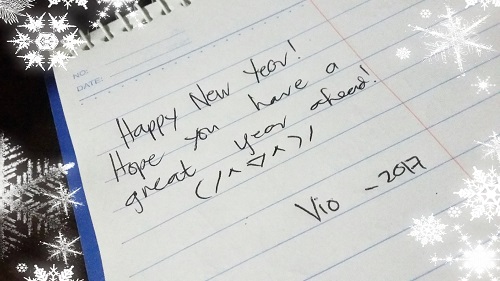 NO:
DATE:
Happy New Year!
Hope you have a
great year ahead!
(/^▽^)/
Vio - 2017